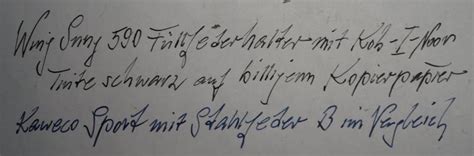 Wing Sung 590 Füllfederhalter mit Koh-I-Noor
Tinte schwarz auf billigem Kopierpapier
Kaweco Sport mit Stahlfeder B im Vergleich